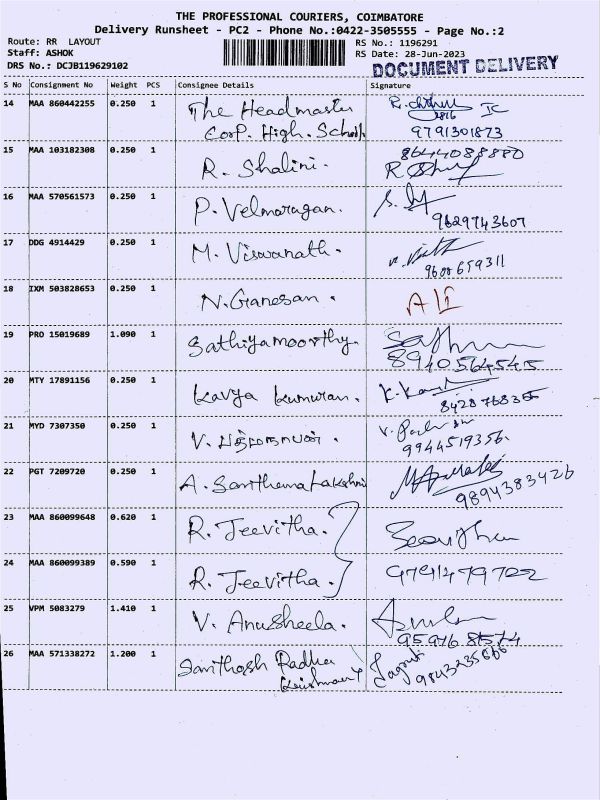 THE PROFESSIONAL COURIERS, COIMBATORE
Delivery Runsheet - PC2 - Phone No.:0422-3505555 - Page No.:2
Route: RR LAYOUT
RS No.: 1196291
Staff: ASHOK
RS Date: 28-Jun-2023
DRS No.: DCJB119629102
DOCUMENT DELIVERY
S No Consignment No Weight PCS Consignee Details Signature
14 MAA 860442255 0.250 1 The Headmaster
Corp. High. School
9791301873
15 MAA 103182308 0.250 1 R. Shalini. 8644088880
16 MAA 570561573 0.250 1 P. Velmurugan. 9629743607
17 DDG 4914429 0.250 1 M. Viswanath.
18 IXM 503828653 0.250 1 N. Ganesan. ALI
19 PRO 15019689 1.090 1 Sathiyamoorthy.
8940564545
20 MTY 17891156 0.250 1 Kavya Kumaran.
21 MYD 7307350 0.250 1 V. பத்மநாபன்.
9944519356.
22 PGT 7209720 0.250 1 A. Santhanalakshmi
9894383426
23 MAA 860099648 0.620 1 R. Jeevitha.
24 MAA 860099389 0.590 1 R. Jeevitha.
25 VPM 5083279 1.410 1 V. Anusheela.
26 MAA 571338272 1.200 1 Santhosh Radha
Krishnan